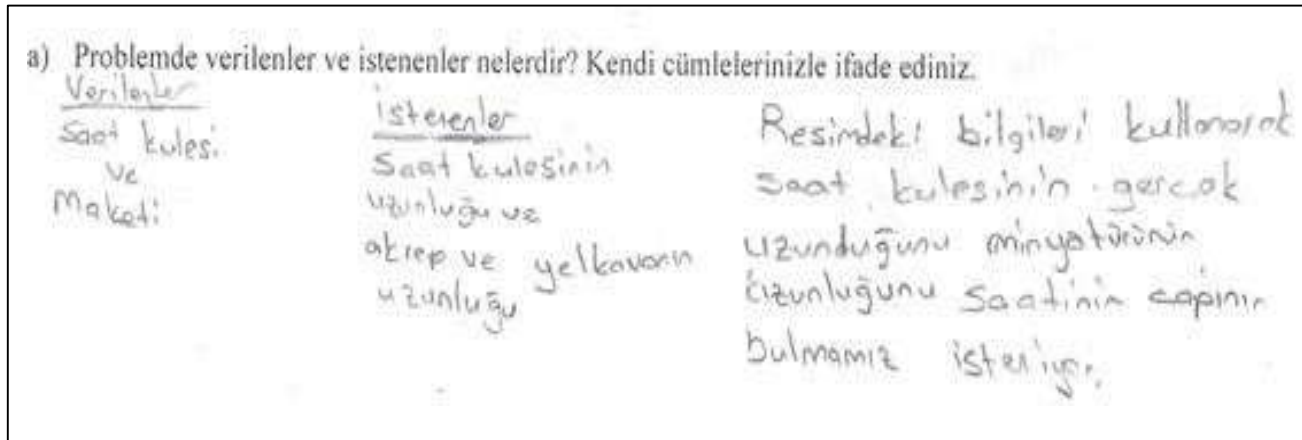 a) Problemde verilenler ve istenenler nelerdir? Kendi cümlelerinizle ifade ediniz.
Verilenler
Saat kulesi
ve
Maketi
İstenenler
Saat kulesinin
uzunluğu ve
akrep ve yelkovanın
uzunluğu
Resimdeki bilgileri kullanarak
saat kulesinin gerçek
uzunduğunu minyatürünün
uzunluğunu saatinin çapının
bulmamız isteniyor.